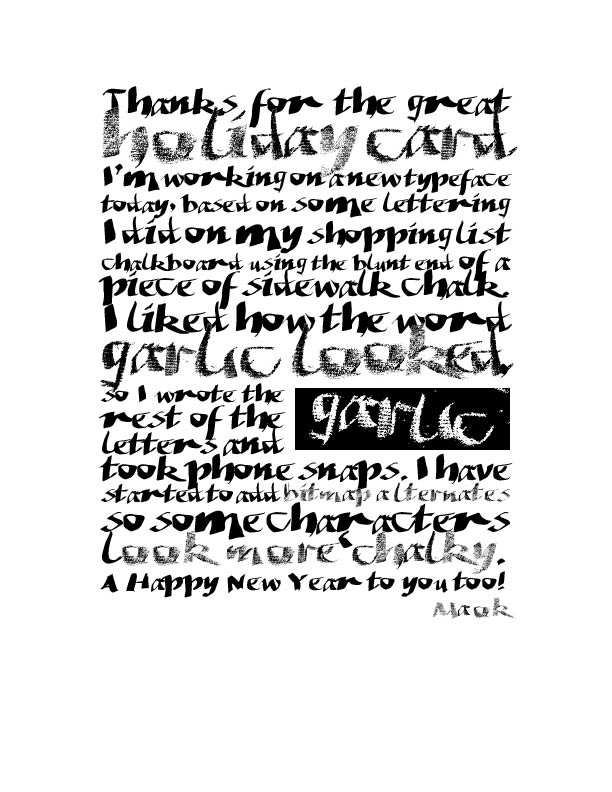 Thanks for the great
holiday card
I'm working on a new typeface
today, based on some lettering
I did on my shopping list
chalkboard using the blunt end of a
piece of sidewalk chalk.
I liked how the word
garlic looked,
so I wrote the
rest of the
letters and
garlic
took phone snaps. I have
started to add bitmap alternates
so some characters
look more 'chalky.
A Happy New Year to you too!